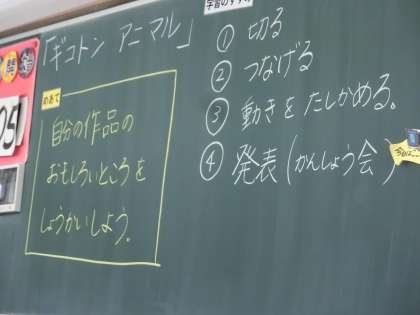 「ギコトン アニマル」
めあて
自分の作品の
おもしろいところを
しょうかいしよう。
学習のすすめ
① 切る
② つなげる
③ 動きを たしかめる。
④ 発表(かんしょう会)
今はここ